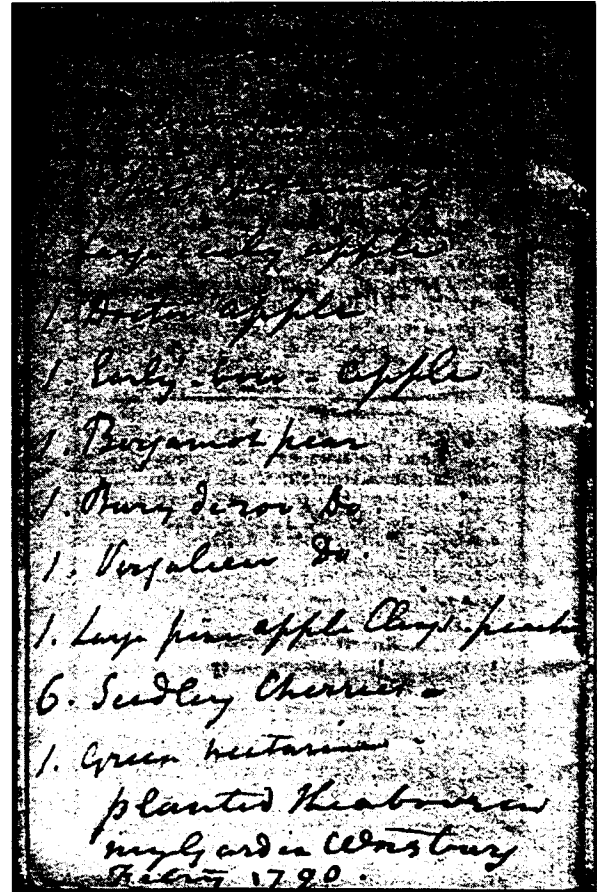 Large early apple
1. Doctor apple
1. Early-bow- apple
1. Bergamot pear
1. Bury deroy Do.
1. Vergalieu Do.
1. Large pine apple Cling. peach
6. Seedley Cherries-
1. Green nectarine
planted the above in
my Garden Westbury
Febry 1790.